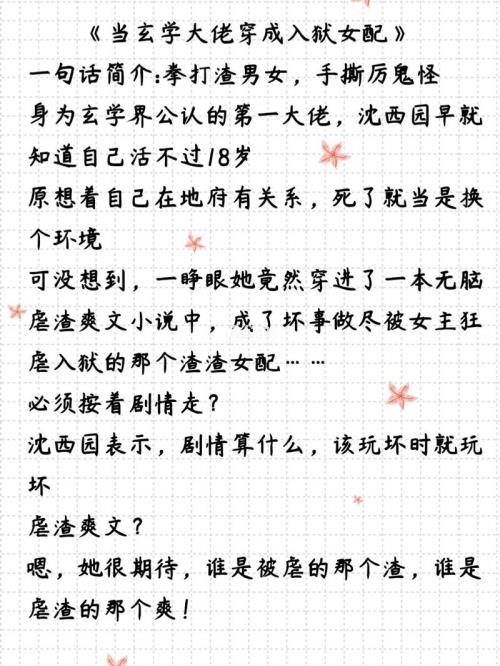 《当玄学大佬穿成入狱女配》
一句话简介:拳打渣男女，手撕厉鬼怪
身为玄学界公认的第一大佬，沈西园早就
知道自己活不过18岁
原想着自己在地府有关系，死了就当是换
个环境
可没想到，一睁眼她竟然穿进了一本无脑
虐渣爽文小说中，成了坏事做尽被女主狂
虐入狱的那个渣渣女配……
必须按着剧情走？
沈西园表示，剧情算什么，该玩坏时就玩
坏
虐渣爽文？
嗯，她很期待，谁是被虐的那个渣，谁是
虐渣的那个爽！